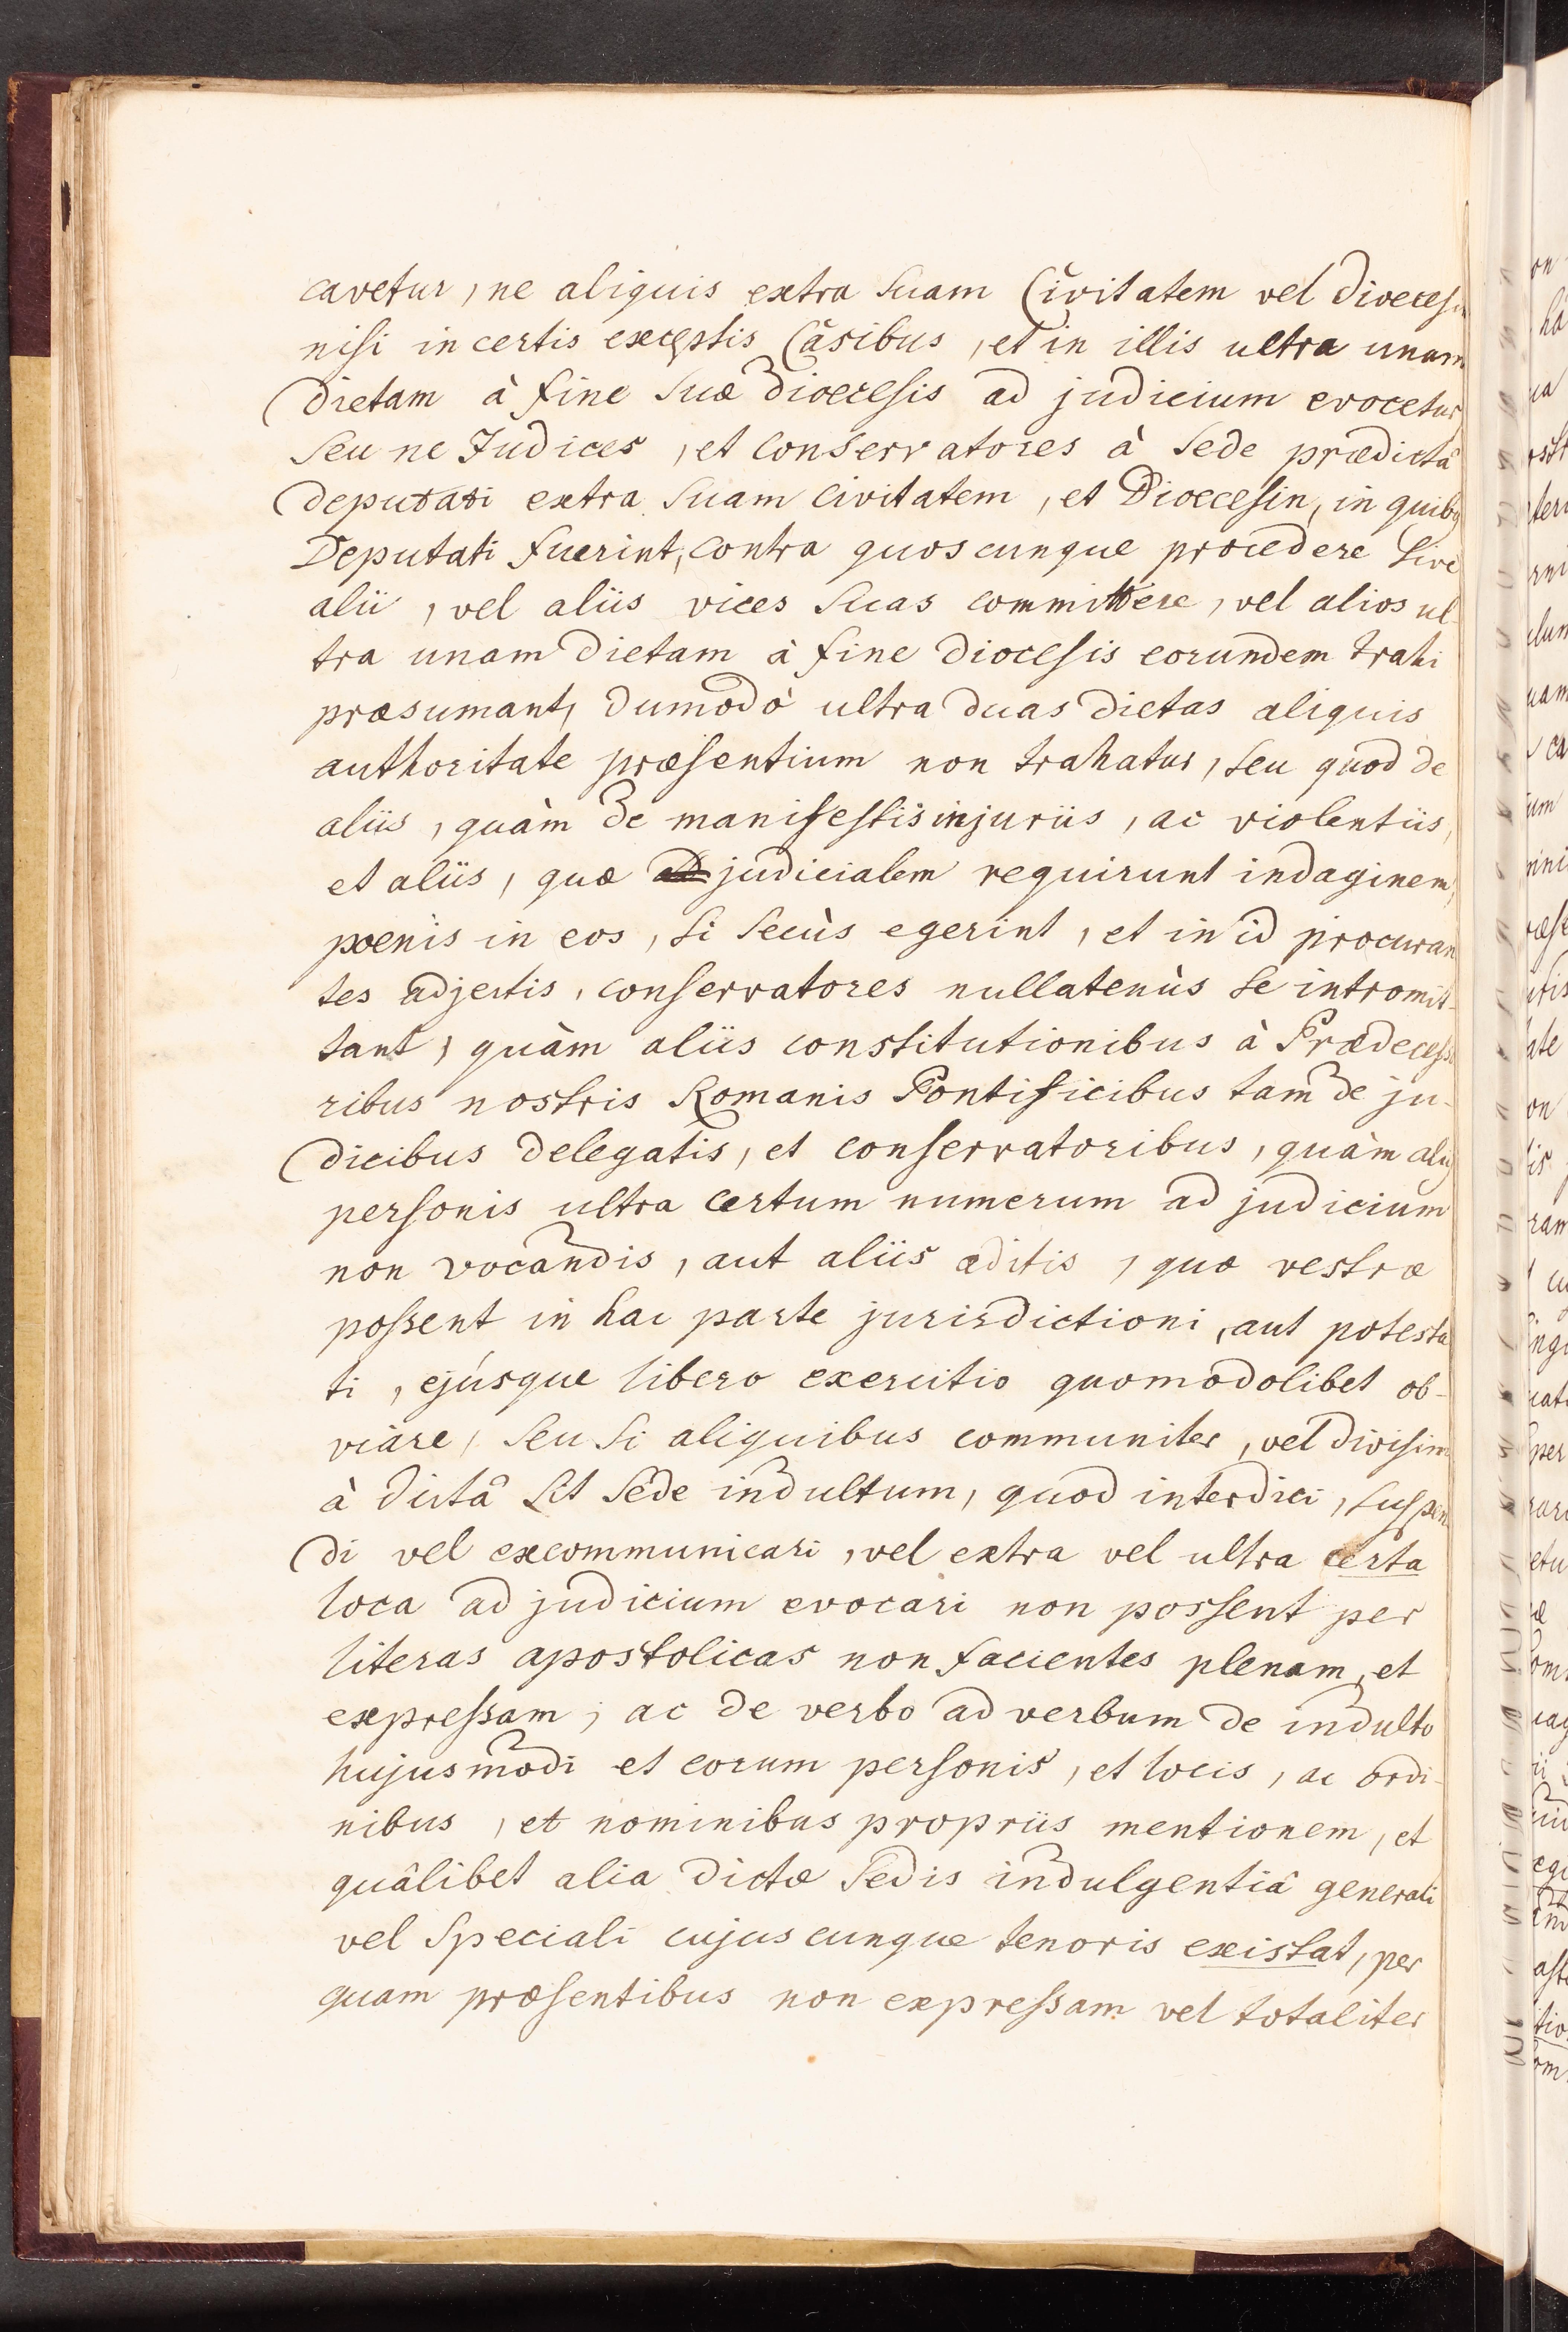 cavetur, ne aliquis extra suam Civitatem vel dioecesin
nisi in certis exceptis Casibus, et in illis ultra unam
dietam à fine suæ dioecesis ad judicium evocetur,
seu ne Judices, et conservatores à sede prædictâ
deputati extra suam civitatem, et Dioecesin, in quibus
Deputati fuerint, contra quoscunque procedere sive
alii, vel aliis vices suas committere, vel alios ul-
tra unam dietam à fine diocesis eorundem trahi
præsumant, dumodò ultra duas dietas aliquis
authoritate præsentium non trahatur, seu quod de
aliis, quàm de manifestis injuriis, ac violentiis,
et aliis, quæ judicialem requirunt indaginem,
poenis in eos, si secùs egerint, et in id procuran
tes adjectis, conservatores nullatenùs se intromit-
tant, quàm aliis constitutionibus à Prædecesso
ribus nostris Romanis Pontificibus tam de ju-
dicibus delegatis, et conservatoribus, quàm aliis
personis ultra certum numerum ad judicium
non vocandis, aut aliis æditis, quæ vestræ
possent in hac parte jurisdictioni, aut potesta
ti, ejúsque libero exercitio quomodolibet ob-
viare, seu si aliquibus communiter, vel divisim
à dictâ sit sede indultum, quod interdici, suspen
di vel excommunicari, vel extra vel ultra certa
loca ad judicium evocari non possent per
literas apostolicas non facientes plenam, et
expressam, ac de verbo ad verbum de indulto
hujusmodi et eorum personis, et locis, ac ordi-
nibus, et nominibus propriis mentionem, et
quâlibet alia dictæ sedis indulgentiâ generali
vel speciali cujuscunque tenoris existat, per
quam præsentibus non expressam vel totaliter